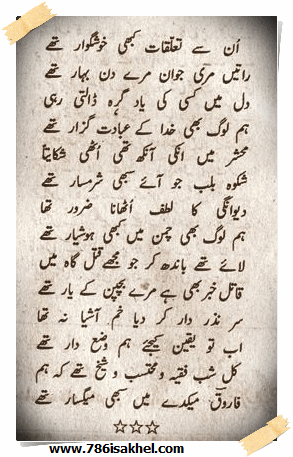 اُن سے تعلقات کبھی خوشگوار تھے
راتیں مری جوان مرے دن بہار تھے
دل میں کسی کی یاد گرہ ڈالتی رہی
ہم لوگ بھی خدا کے عبادت گزار تھے
محشر میں انکی آنکھ تھی اُٹھی شکایتاً
شکوہ بلب جو آئے سبھی شرمسار تھے
دیوانگی کا لطف اُٹھانا ضرور تھا
ہم لوگ بھی چمن میں کبھی ہوشیار تھے
لائے تھے باندھ کر جو مجھے قتل گاہ میں
قاتل خبر بھی ہے مرے بچپن کے یار تھے
سر نذرِ دار کر دیا خم آشیا نہ تھا
اب تو یقین کیجئے ہم وضع دار تھے
کل شب فقیہ و محتسب و شیخ تھے کہ ہم
فاروقؔ میکدے میں سبھی میگسار تھے
☆☆☆
www.786isakhel.com